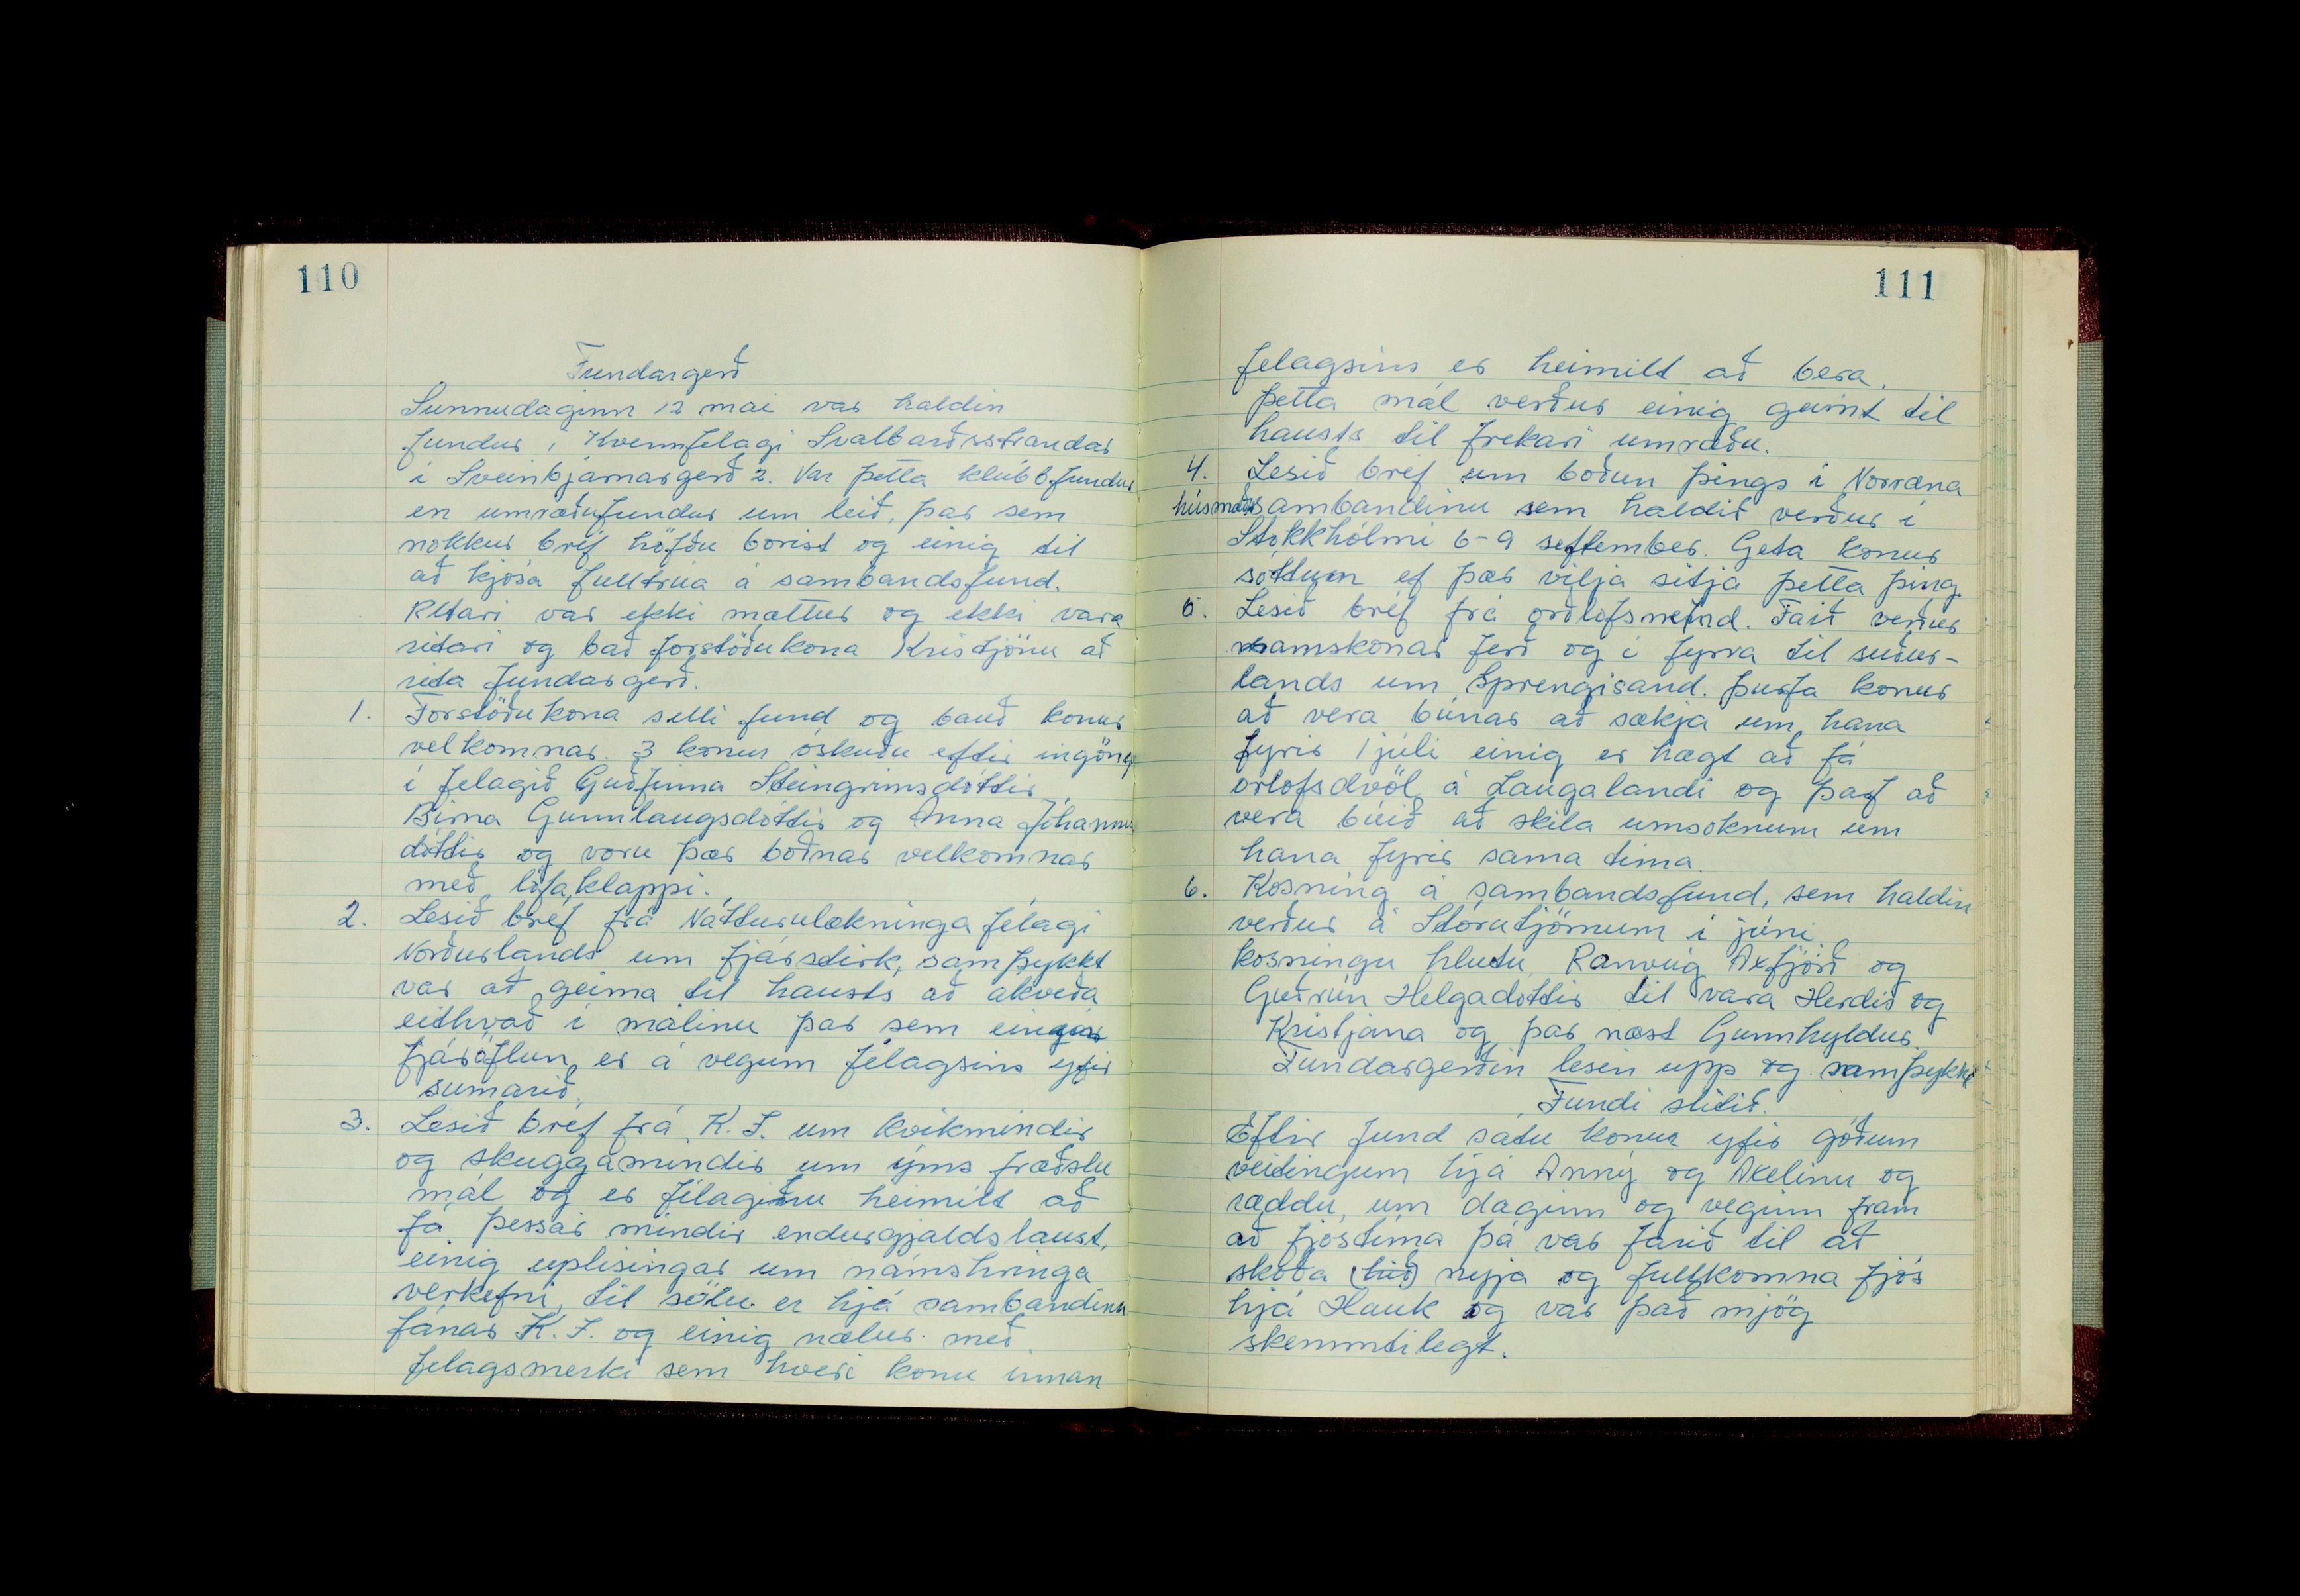 110
Fundargerð
Sunnudaginn 12 mai var haldin
fundur í Kvennfelagi Svalbarðsstrandar
i Sveinbjarnargerð 2. Var þetta klúbbfundur
en umræðufundur um leið, þar sem
nokkur bréf höfðu borist og einig til
að kjósa fulltrúa á sambandsfund.
Ritari var ekki mættur og ekki vara
ritari og bað forstöðukona Kristjönu að
rita fundargerð.
1. Forstöðukona setti fund og bauð konur
velkomnar. 3 konur óskuðu eftir ingöngu
í felagið Guðfinna Steingrimsdóttir
Birna Gunnlaugsdóttir og Anna Jóhannes
dóttir og voru þær boðnar velkomnar
með lófaklappi.
2. Lesið bréf frá Náttúrulækninga félagi
Norðurlands um fjárstirk, samþykkt
var að geima til hausts að akveða
eithvað i málinu þar sem eingin
fjáröflun er á vegum félagsins yfir
sumarið.
3. Lesið bréf frá K.Í. um kvikmindir
og skuggamindir um ýms fræðslu
mál og er félaginu heimilt að
fá þessar mindir endurgjaldslaust,
einig uplisingar um námshringa
verkefni, til sölu er hjá sambandinu
fánar K.Í. og einig nælur með
felagsmerki sem hveri konu innan
111
felagsins er heimilt að bera.
Þetta mál verður einig geimt til
hausts til frekari umræðu.
4. Lesið bréf um boðun þings i Norræna
húsmæðrasambandinu sem haldið verður i
Stokkhólmi 6-9 september. Geta konur
sóttum ef þær vilja sitja þetta þing.
5. Lesið bréf frá orðlofsnefnd. Farið verður
samskonar ferð og í fyrra til suður-
lands um Sprengisand. Þurfa konur
að vera búnar að sækja um hana
fyrir 1 júli einig er hægt að fá
orlofsdvöl á Laugalandi og þarf að
vera búið að skila umsoknum um
hana fyrir sama tima.
6. Kosning á sambandsfund, sem haldin
verður á Stórutjörnum i júni
kosningu hlutu Ranveig Axfjörð og
Guðrún Helgadóttir til vara Herdís og
Kristjana og þar næst Gunnhyldur.
Fundargerðin lesin upp og samþykkt
Fundi slitið.
Eftir fund satu konur yfir góðum
veitingum hjá Anný og Akelinu og
ræddu um daginn og veginn fram
að fjóstima þá var farið til að
skoða (hið) nyja og fullkomna fjós
hjá Hauk og var það mjög
skemmtilegt.